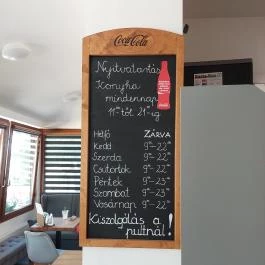 Coca-Cola
Nyitvatartás
Konyha
mindennap
11⁰⁰-től 21⁰⁰-ig
Hétfő ZÁRVA
Kedd 9⁰⁰-22⁰⁰
Szerda 9⁰⁰-22⁰⁰
Csütörtök 9⁰⁰-22⁰⁰
Péntek 9⁰⁰-23⁰⁰
Szombat 9⁰⁰-23⁰⁰
Vasárnap 9⁰⁰-22⁰⁰
Kiszolgálás a
pultnál!